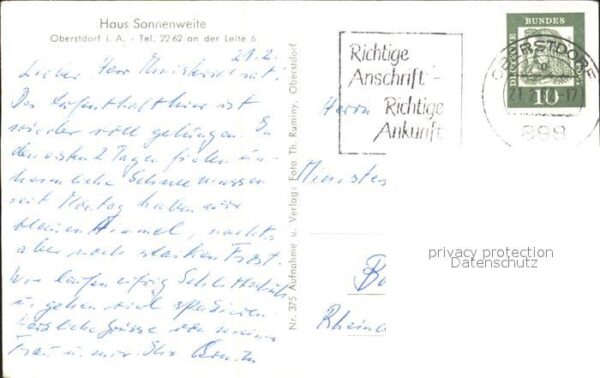 Haus Sonnenweite
Oberstdorf i. A. - Tel. 2262 an der Leite 6
21.2.
Lieber Herr Ministerialrat.
Der Aufenthalt hier ist
wieder voll gelungen. In
den ersten 2 Tagen fielen un-
heimliche Schneemassen
seit Montag haben wir
blauen Himmel, nachts
aber noch starken Frost.
Wir laufen eifrig Schlittschuh
u. gehen viel spazieren.
Herzliche Grüsse von meiner
Frau u. mir Ihr
Nr. 375 Aufnahme u. Verlag: Foto Th. Raminy, Oberstdorf
Richtige
Anschrift -
Richtige
Ankunft
OBERSTDORF
21.2. -17
898
DEUTSCHE
BUNDES
10
Herrn
Ministe
Rhein
privacy protection
Datenschutz